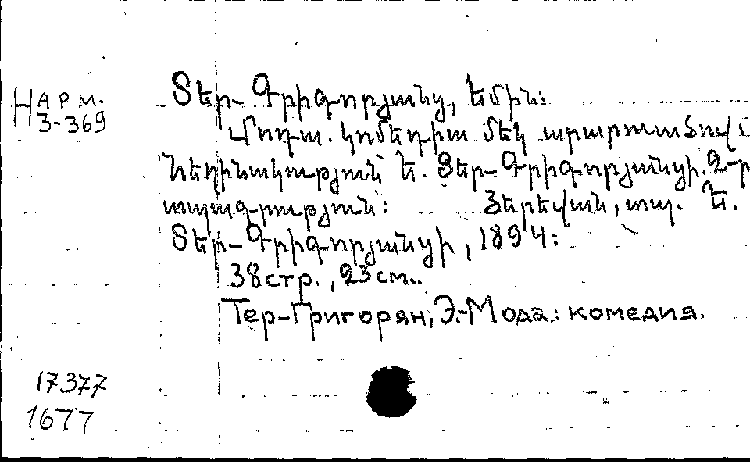 НАРМ.
3-369
Տեր-Գրիգորյանց, Եմին:
Մոդա. կոմեդիա մեկ արարուածով
հեղինակություն Ե. Տեր-Գրիգորյանցի. 2-
տպագրություն: Յերեվան, տպ. Է.
Տեր-Գրիգորյանցի, 1894:
38стр., 23см..
Тер-Григорян, Э.-Мода.: комедия.
17377
1677